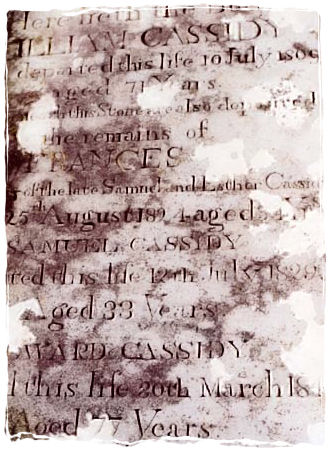 Here lieth the
ILLIAM CASSIDY
departed this life 10 July 180
aged 71 Years
this Stone are also deposited
the remains of
FRANCES
of the late Samuel and Esther Cassid
25th August 182 aged
SAMUEL CASSIDY
ted this life 12th July 1828
Aged 33 Years
WARD CASSIDY
this life 20th March 18
Aged 77 Years